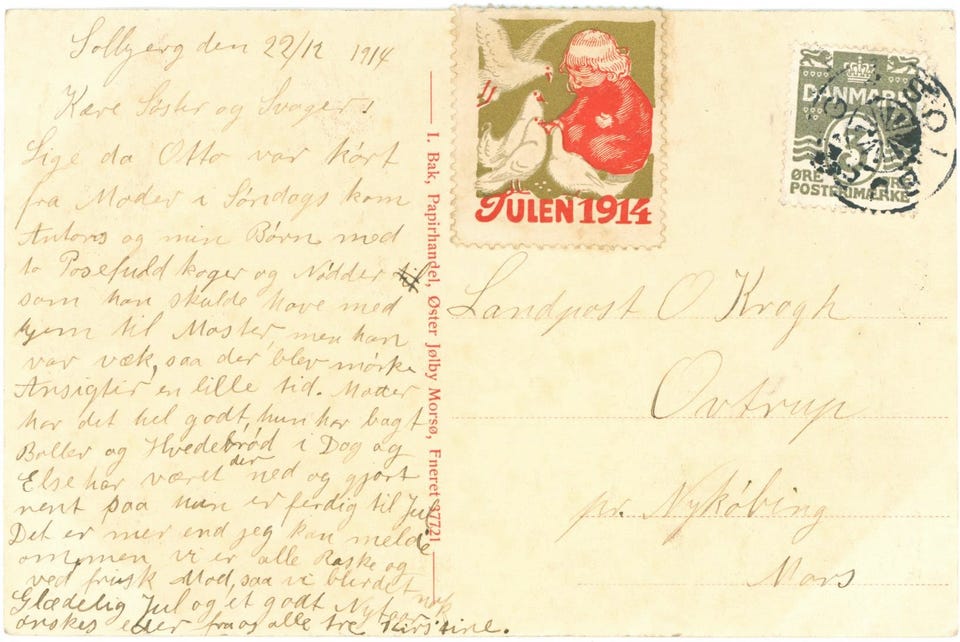 Solbjerg den 22/12 1914
Kære Søster og Svoger!
Lige da Otto var kørt
fra Moder i Søndags kom
Antons og min Børn med
to Posefuld kager og Nødder til
som han skulde have med
hjem til Moster, men han
var væk, saa der blev mørke
Ansigter en lille tid. Moder
har det hel godt, hun har bagt
Boller og Hvedebrød i Dag og
Else har været der ned og gjort
rent saa hun er ferdig til Jul
Det er mer end jeg kan melde
om, men vi er alle Raske og
ved frisk Mod, saa vi
Glædelig Jul og et godt Nytaar
ønskes eder fra os alle tre Kirstine.
I. Bak, Papirhandel, Øster Jølby Morsø, Eneret 37721
JULEN 1914
DANMARK
ØRE
POSTFRIMÆRKE
Landpost O Krogh
Ovtrup
pr. Nykøbing
Mors